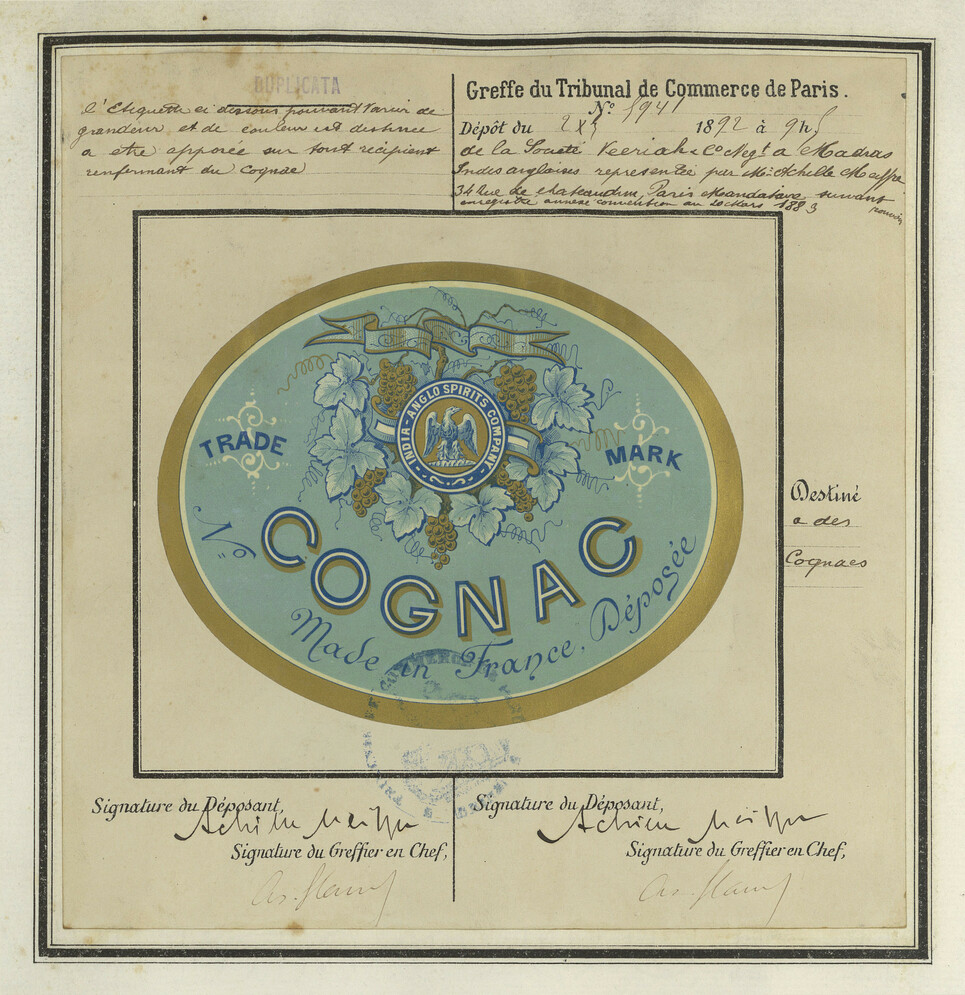 DUPLICATA
l'Etiquette ci dessous pouvant varier de
grandeur et de couleur est destinée
a etre apposée sur tout récipient
renfermant du Cognac
Greffe du Tribunal de Commerce de Paris.
Nº 5941
Dépôt du 2 Xb 1892 à 9h
de la Société Veeriah & Co Negt a Madras
Indes anglaises representée par Mr Achille
34 Rue de chateaudun, Paris Mandataire suivant
enregistré annexe convention au 20 Mars 1883
INDIA-ANGLO SPIRITS COMPANY
TRADE MARK
Nº COGNAC
Made in France, Déposée
Destiné
a des
Cognacs
Signature du Déposant,
Achille
Signature du Greffier en Chef,
Signature du Déposant,
Achille
Signature du Greffier en Chef,